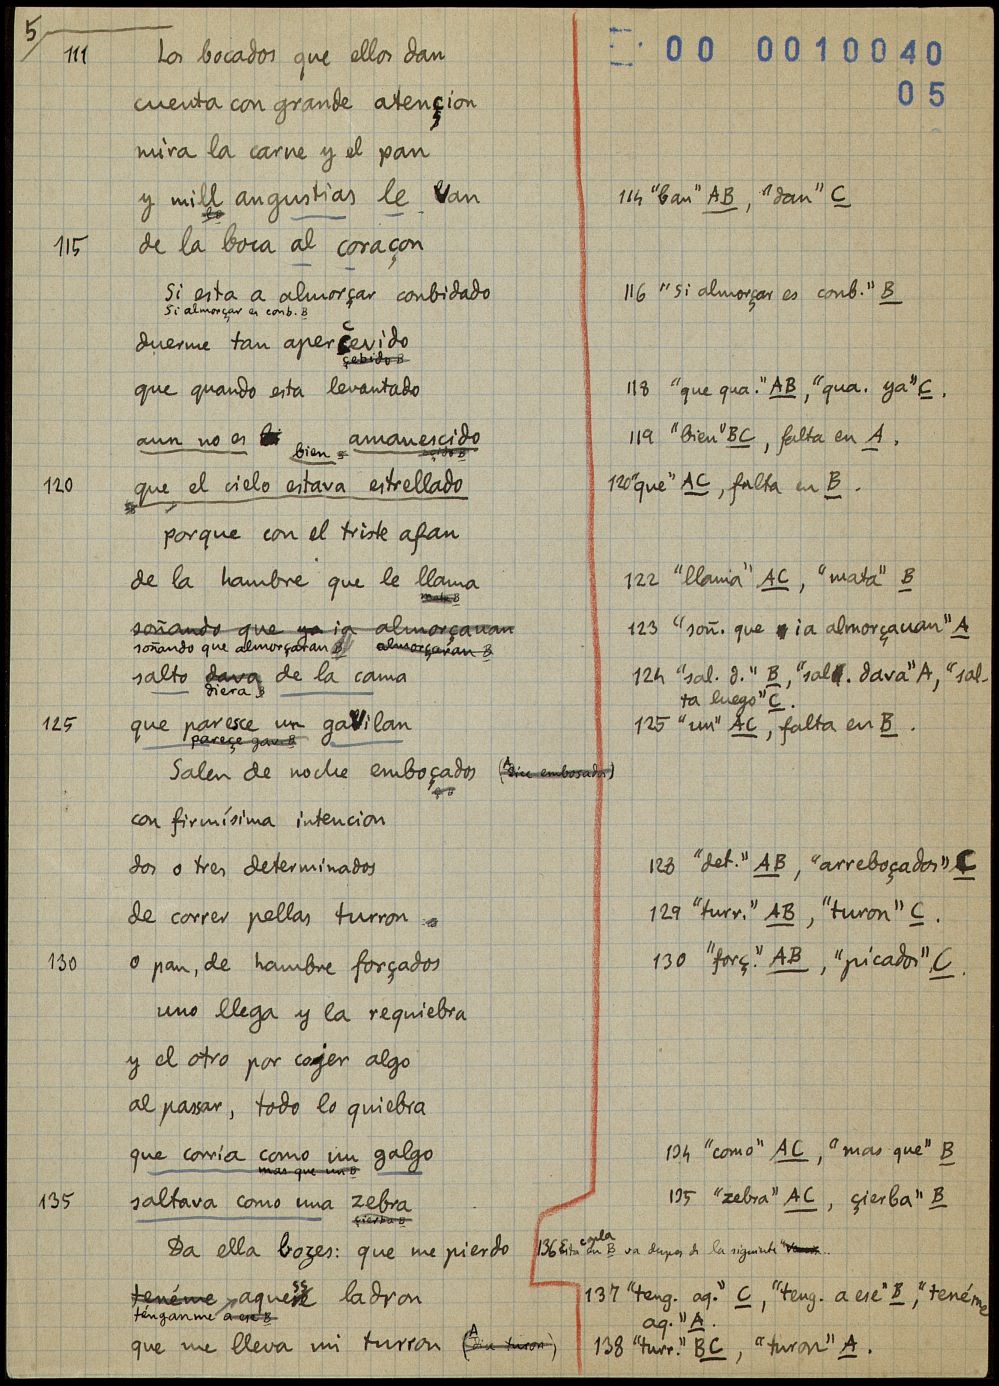 5
00 0010040
05
111 Los bocados que ellos dan
cuenta con grande atençion
mira la carne y el pan
y mill angustias le van
114 "ban" AB, "dan" C
115 de la boca al coraçon
Si esta a almorçar conbidado
Si almorçar es conb. B
116 "Si almorçar es conb." B
duerme tan aperçevido
çebido B
que quando esta levantado
118 "que qua." AB, "qua. ya" C.
aun no es bien amanescido
çido B
119 "bien" BC, falta en A.
120 que el cielo estava estrellado
120 "que" AC, falta en B.
porque con el triste afan
de la hambre que le llama
mata B
122 "llama" AC, "mata" B
soñando que ya ia almorçauan
soñando que almorçaran B almorçavan B
123 "soñ. que ia almorçauan" A
salto dava de la cama
diera B
124 "sal. d." B, "sal. dava" A, "sal-
ta luego" C.
125 que paresce un gavilan
pareçe gav. B
125 "un" AC, falta en B.
Salen de noche emboçados (A dice embosados)
con firmísima intencion
dos o tres determinados
128 "det." AB, "arreboçados" C
de correr pellas turron
129 "turr." AB, "turon" C.
130 o pan, de hambre forçados
130 "forç." AB, "picados" C.
uno llega y la requiebra
y el otro por cojer algo
al passar, todo lo quiebra
que corria como un galgo
mas que un B
134 "como" AC, "mas que" B
135 saltava como una zebra
çierba B
135 "zebra" AC, çierba" B
Da ella bozes: que me pierdo
136 Esta copla en B va despues de la siguiente
tenéme aquesse ladron
ténganme a ese B
137 "teng. aq." C, "teng. a ese" B, "tenéme
aq." A.
que me lleva mi turron (A dice turon)
138 "turr." BC, "turon" A.